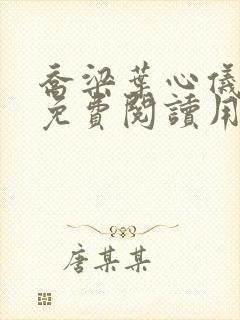 喬梁葉心儀
免費閱讀用
唐某某